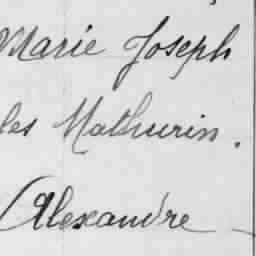 Marie Joseph
les Mathurin.
Alexandre